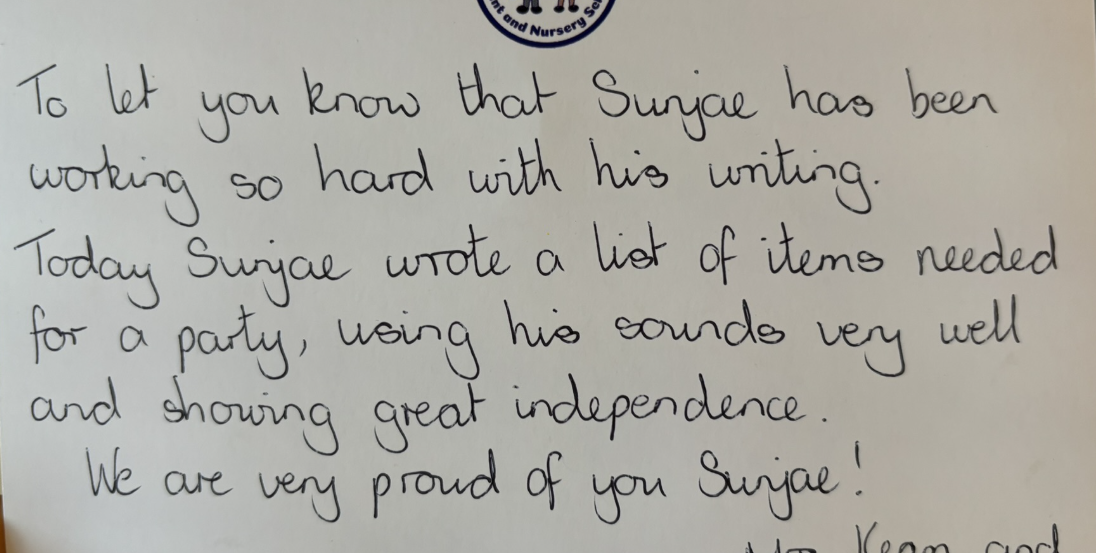 and Nursery
To let you know that Sunjae has been
working so hard with his writing.
Today Sunjae wrote a list of items needed
for a party, using his sounds very well
and showing great independence.
We are very proud of you Sunjae!
and